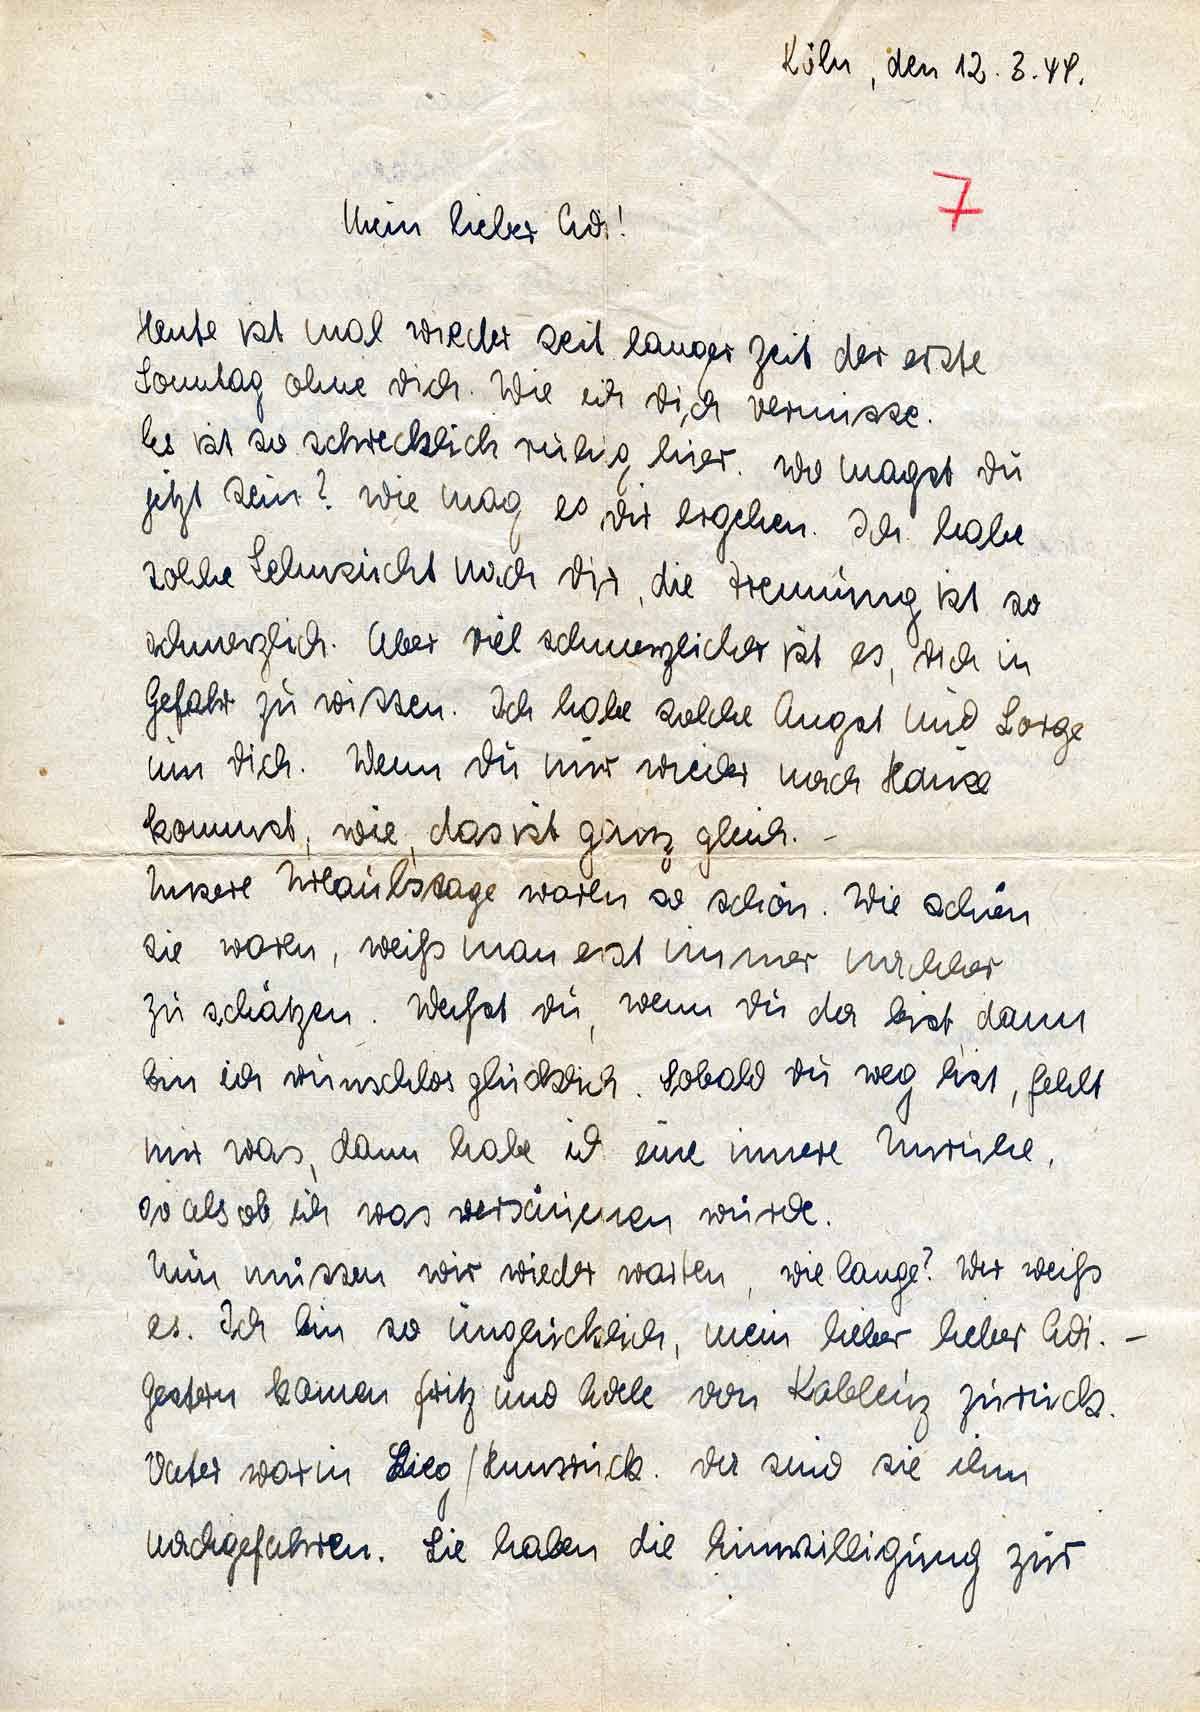 Köln, den 12.3.44.
7
Mein lieber Adi!
Heute ist mal wieder seit langer Zeit der erste
Sonntag ohne dich. Wie ich dich vermisse.
Es ist so schrecklich ruhig hier. Wo magst du
jetzt sein? Wie mag es dir ergehen. Ich habe
solche Sehnsucht nach dir, die Trennung ist so
schmerzlich. Aber viel schmerzlicher ist es, dich in
Gefahr zu wissen. Ich habe solche Angst und Sorge
um dich. Wenn du nur wieder nach Hause
kommst, wie, das ist ganz gleich. –
Unsere Urlaubstage waren so schön. Wie schön
sie waren, weiß man erst immer nachher
zu schätzen. Weißt du, wenn du da bist, dann
bin ich wunschlos glücklich. Sobald du weg bist, fehlt
mir was, dann habe ich eine innere Unruhe,
so als ob ich was versäumen würde.
Nun müssen wir wieder warten, wie lange? Wer weiß
es. Ich bin so unglücklich, mein lieber lieber Adi. –
Gestern kamen Fritz und Adele von Koblenz zurück.
Vater war in Lieg/Hunsrück. Da sind sie ihm
nachgefahren. Sie haben die Einwilligung zur